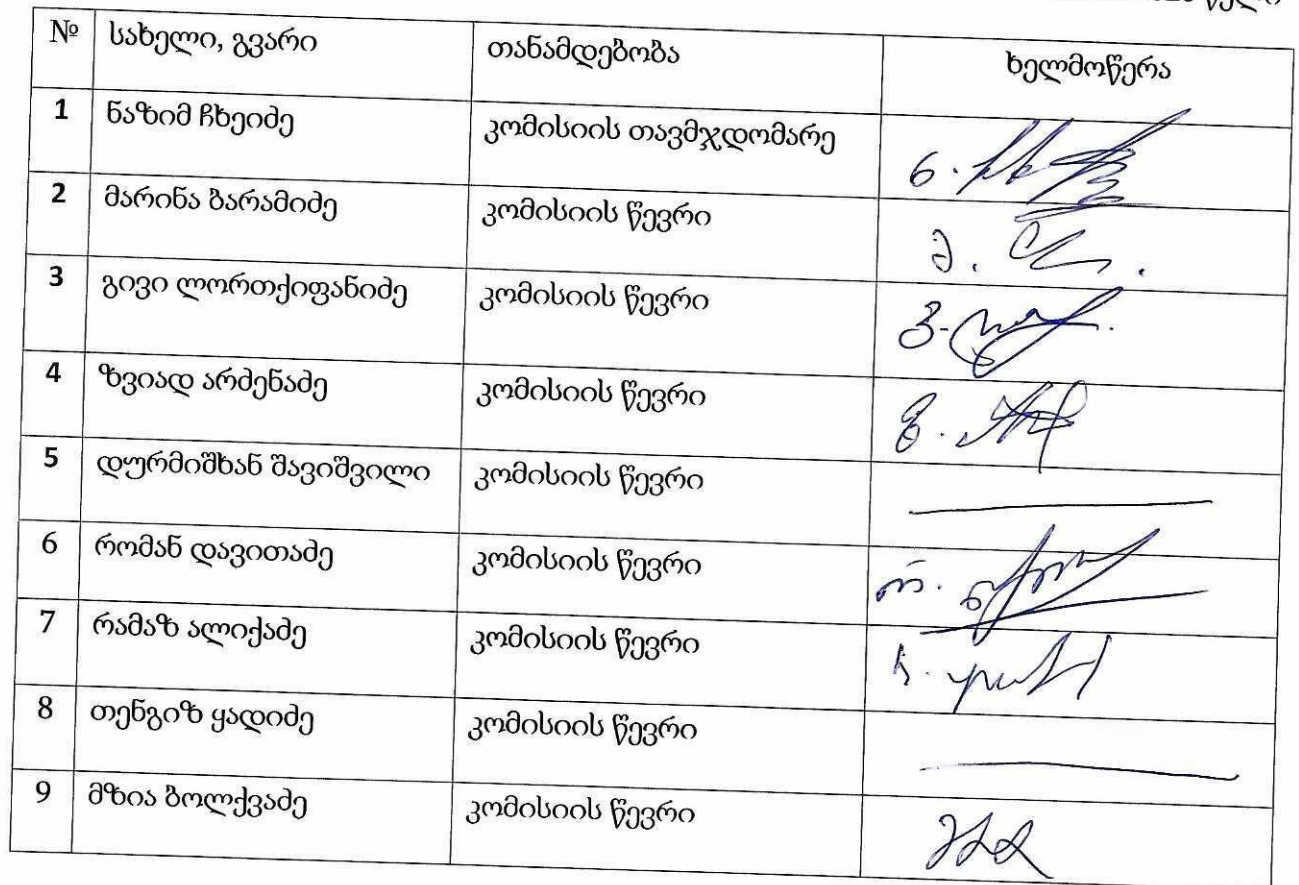 წელი
№ სახელი, გვარი თანამდებობა ხელმოწერა
1 ნაზიმ ჩხეიძე კომისიის თავმჯდომარე
2 მარინა ბარამიძე კომისიის წევრი
3 გივი ლორთქიფანიძე კომისიის წევრი
4 ზვიად არძენაძე კომისიის წევრი
5 დურმიშხან შავიშვილი კომისიის წევრი
6 რომან დავითაძე კომისიის წევრი
7 რამაზ ალიქაძე კომისიის წევრი
8 თენგიზ ყადიძე კომისიის წევრი
9 მზია ბოლქვაძე კომისიის წევრი